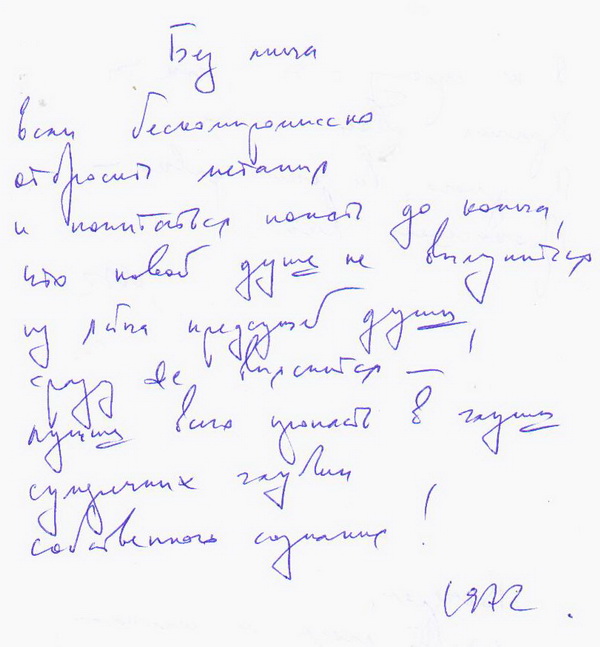 Без лица
если бескомпромиссно
отбросить
и попытаться понять до конца,
что новой душе не вылупиться
из яйца предсущей души,
сразу же выяснится —
лучше всего упасть в глуши
сумрачных глубин
собственного сознания!
1972.